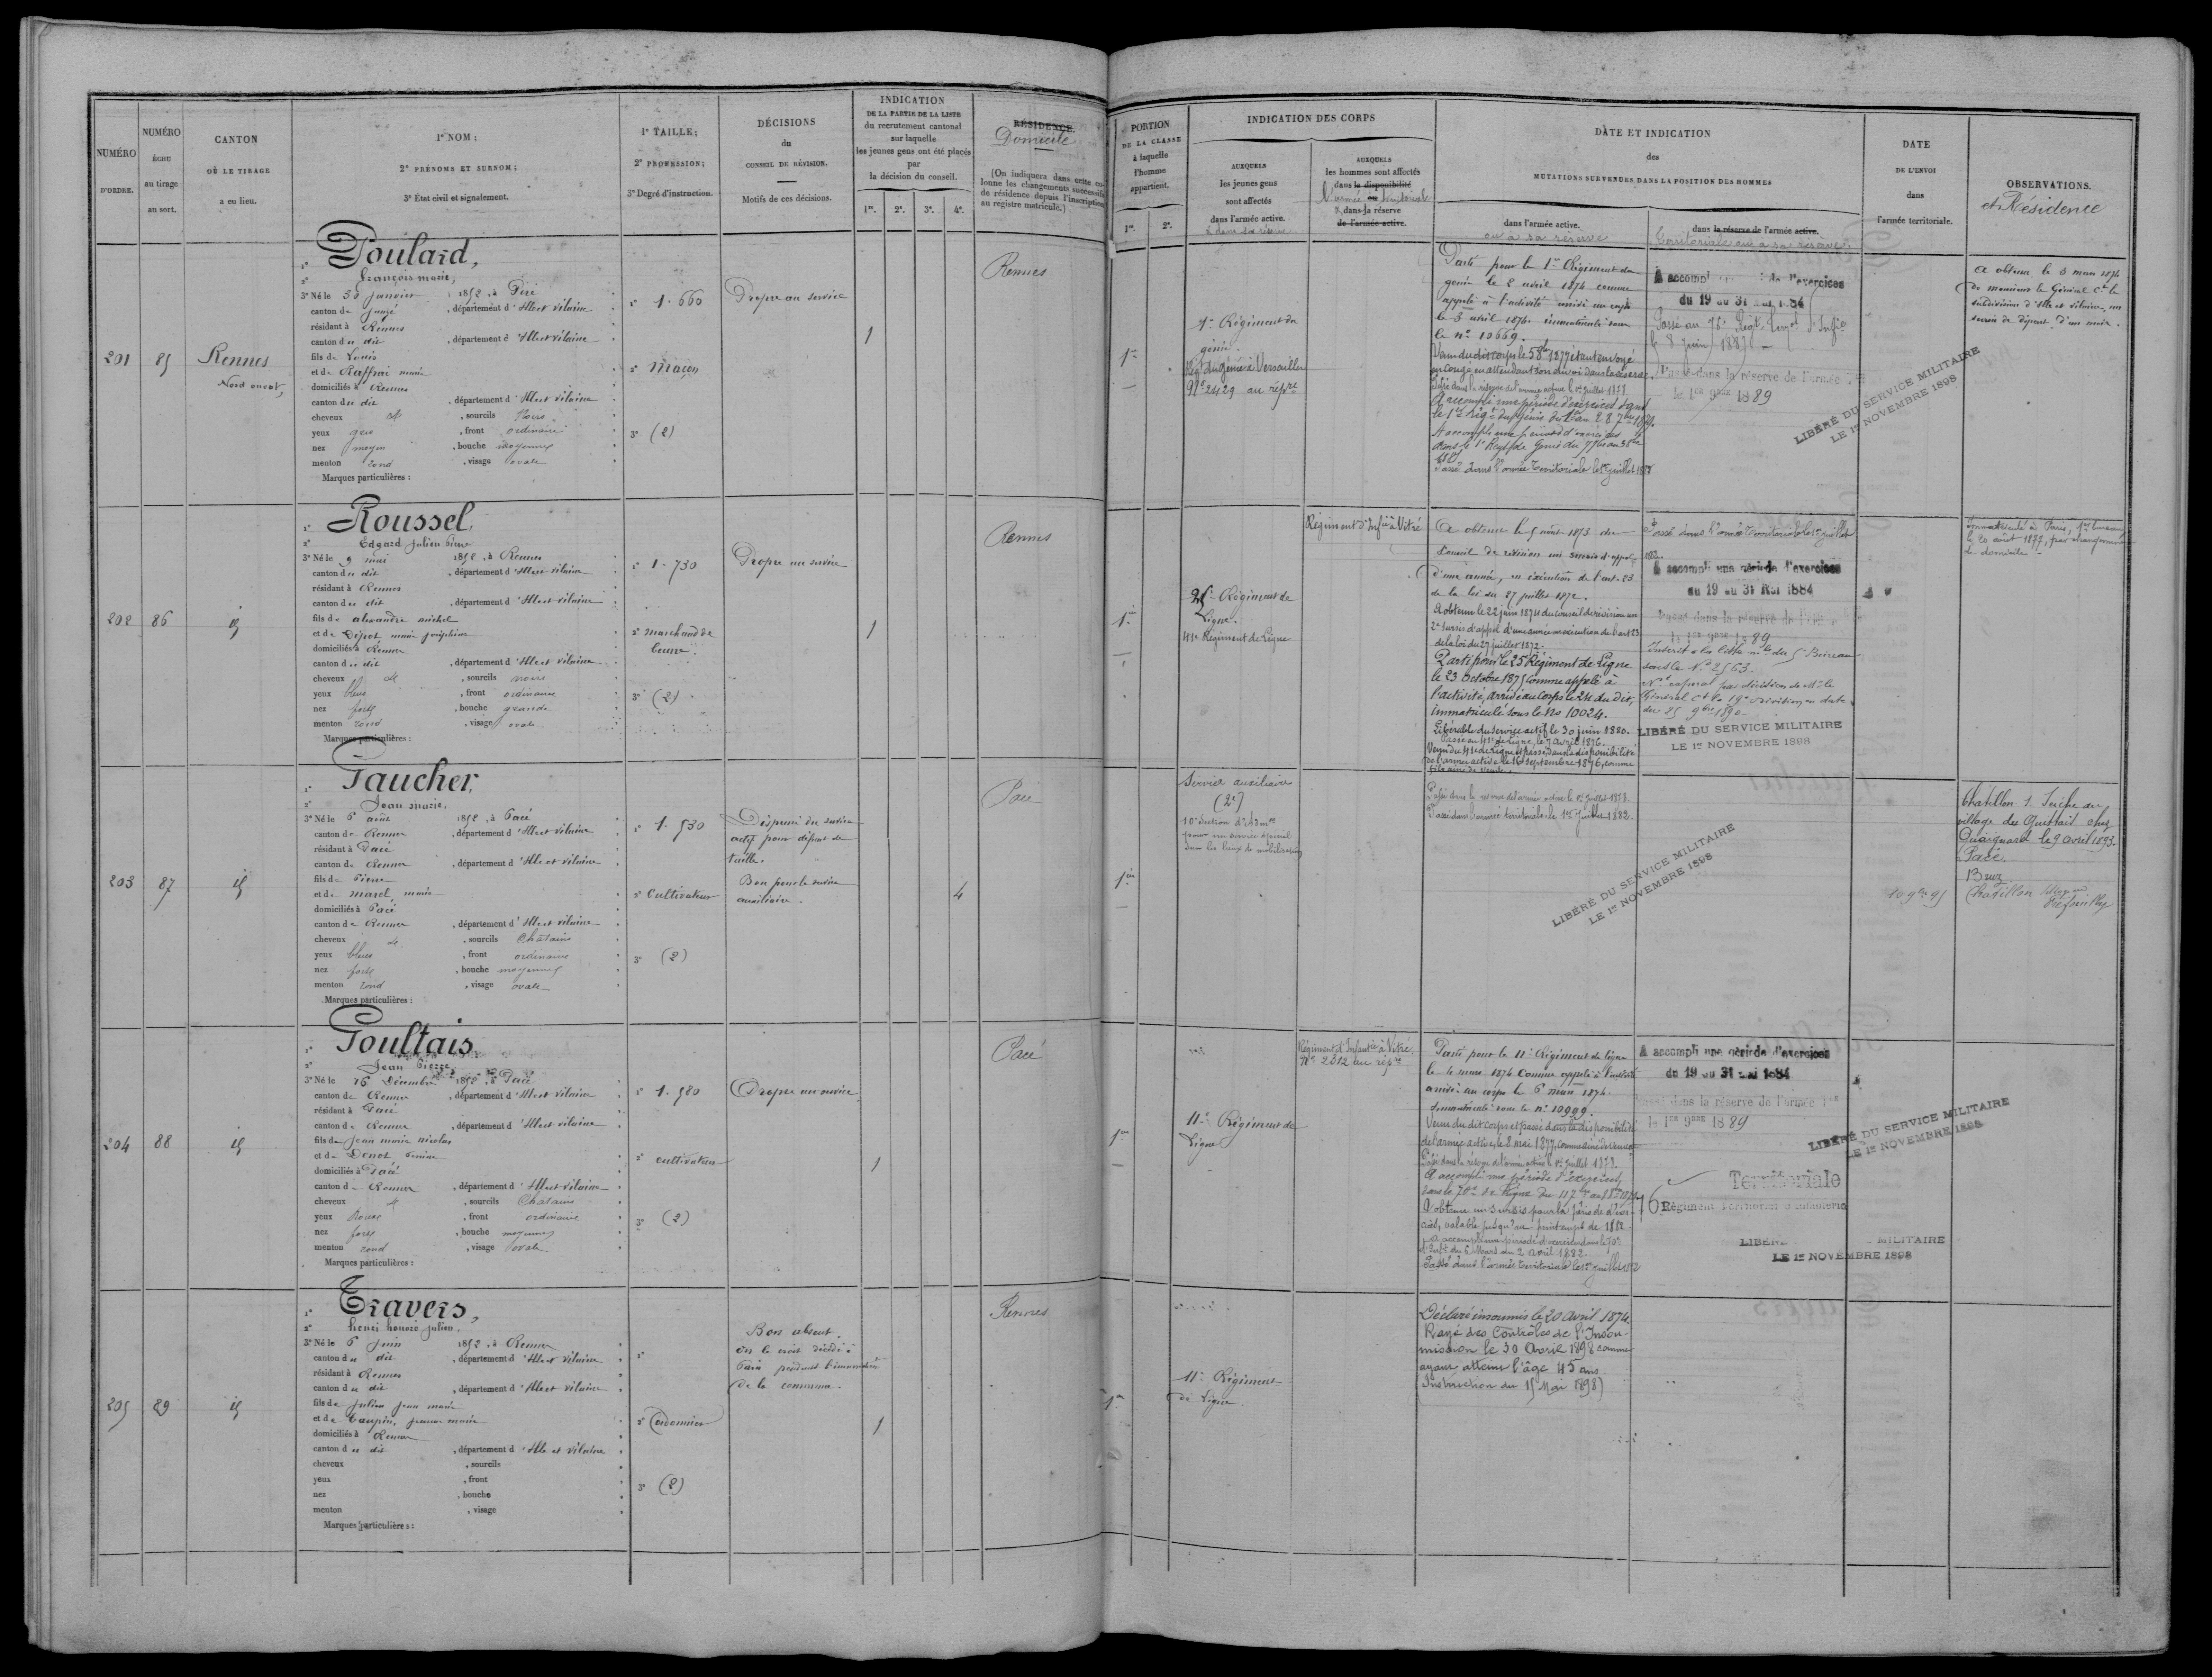 NUMÉRO
D'ORDRE.
NUMÉRO
ÉCHU
au tirage
au sort.
CANTON
OÙ LE TIRAGE
a eu lieu.
1º NOM;
2º PRÉNOMS ET SURNOM;
3º État civil et signalement.
1º TAILLE;
2º PROFESSION;
3º Degré d'instruction.
DÉCISIONS
du
CONSEIL DE RÉVISION.
Motifs de ces décisions.
INDICATION
DE LA PARTIE DE LA LISTE
du recrutement cantonal
sur laquelle
les jeunes gens ont été placés
par
la décision du conseil.
1re. 2e. 3e. 4e.
RÉSIDENCE.
Domicile
(On indiquera dans cette colonne les changements successifs
de résidence depuis l'inscription
au registre matricule.)
PORTION
DE LA CLASSE
à laquelle
l'homme
appartient.
1re. 2e.
INDICATION DES CORPS
AUXQUELS
les jeunes gens
sont affectés
dans l'armée active.
AUXQUELS
les hommes sont affectés
dans la disponibilité
ou
l'armée territoriale
dans la réserve
de l'armée active.
DATE ET INDICATION
des
MUTATIONS SURVENUES DANS LA POSITION DES HOMMES
dans l'armée active.
ou à sa réserve
dans la réserve de l'armée active.
Territoriale ou à sa réserve.
DATE
DE L'ENVOI
dans
l'armée territoriale.
OBSERVATIONS.
et Résidence
201
85
Rennes
Nord ouest,
1º Poulard,
2º François marie,
3º Né le 30 janvier 1852, à Piré
canton de Janzé, département d'Ille et vilaine
résidant à Rennes
canton du dit, département d'Ille et vilaine
fils de Louis
et de Raffrai marie
domiciliés à Rennes
canton du dit, département d'Ille et vilaine
cheveux et, sourcils Noirs
yeux gris, front ordinaire
nez moyen, bouche moyenne
menton rond, visage ovale
Marques particulières:
1º 1.660
2º Maçon
3º (2)
Propre au service
1
Rennes
1re
1er Régiment du
génie.
Régt du Génie à Versailles
Nº 2429 au répre
Parti pour le 1er Régiment du
génie le 2 avril 1874 comme
appelé à l'activité arrivé au corps
le 3 avril 1874. immatriculé sous
le nº 13669.
en congé en attendant son envoi dans la réserve.
Passé dans la réserve de l'armée active le 1er Juillet 1878
A accompli une période d'exercices dans
Passé dans l'armée territoriale le 1er juillet 1882
A accompli une période d'exercices
du 19 au 31 mai 1884
le 8 Juin 1887
Passé dans la réserve de l'armée
le 1er 9bre 1889
LIBÉRÉ DU SERVICE MILITAIRE
LE 1er NOVEMBRE 1898
A obtenu le 3 mars 1874
de monsieur le Général Ct la
subdivision d'Ille et vilaine, un
sursis de départ d'un mois.
202
86
id
1º Roussel,
2º Edgard Julien Pierre
3º Né le 9 mai 1852, à Rennes
canton du dit, département d'Ille et vilaine
résidant à Rennes
canton du dit, département d'Ille et vilaine
fils de alexandre michel
et de Dépot, marie joséphine
domiciliés à Rennes
canton du dit, département d'Ille et vilaine
cheveux et, sourcils noirs
yeux bleus, front ordinaire
nez fort, bouche grande
menton rond, visage ovale
Marques particulières:
1º 1.730
2º Marchand de
beurre.
3º (2)
Propre au service
1
Rennes
1re
25e Régiment de
Ligne.
41e Régiment de Ligne
Régiment d'Infie à Vitré
A obtenu le 5 août 1873 du
Conseil de révision un sursis d'appel
d'une année, en exécution de l'art. 23
de la loi du 27 juillet 1872.
A obtenu le 22 juin 1874 du Conseil de révision un
2e sursis d'appel d'une année en exécution de l'art 23
de la loi du 27 juillet 1872.
Parti pour le 25e Régiment de Ligne
le 23 Octobre 1875 comme appelé à
l'activité, arrivé au Corps le 24 du dit,
immatriculé sous le No 10024.
Libérable du service actif le 30 juin 1880.
Passé au 41e de Ligne le 7 Avril 1876.
Venu du 41e de Ligne et passé dans la disponibilité
de l'armée active le 16 Septembre 1876, comme
fils ainé de veuve.
Passé dans l'armée territoriale le 1er juillet
1882
A accompli une période d'exercices
du 19 au 31 Mai 1884
Passé dans la réserve de l'armée
le 1er 9bre 1889
Inscrit à la liste mle du 5e Bureau
sous le Nº 2563.
du 25 9bre 1890
LIBÉRÉ DU SERVICE MILITAIRE
LE 1er NOVEMBRE 1898
Immatriculé à Paris, 1er bureau
le 20 août 1877, par changement
de domicile
203
87
id
1º Faucher,
2º Jean marie,
3º Né le 6 août 1852, à Pacé
canton de Rennes, département d'Ille et vilaine
résidant à Pacé
canton de Rennes, département d'Ille et vilaine
fils de Pierre
et de marel, marie
domiciliés à Pacé
canton de Rennes, département d'Ille et vilaine
cheveux et, sourcils Châtains
yeux bleus, front ordinaire
nez fort, bouche moyenne
menton rond, visage ovale
Marques particulières:
1º 1.530
2º Cultivateur
3º (2)
Dispensé du service
actif pour défaut de
taille.
Bon pour le service
auxiliaire.
4
Pacé
1re
Service auxiliaire
(2e)
10e Section d'Admon
pour un service spécial
dans les lieux de mobilisation
Passé dans la réserve de l'armée active le 1er Juillet 1878.
Passé dans l'armée territoriale le 1er Juillet 1882.
LIBÉRÉ DU SERVICE MILITAIRE
LE 1er NOVEMBRE 1898
10 9bre 95
Chatillon s. Seiche au
village du
le 9 avril 1893
Pacé.
Bruz
Chatillon
204
88
id
1º Poultais
2º Jean Pierre
3º Né le 16 Décembre 1852, à Pacé
canton de Rennes, département d'Ille et vilaine
résidant à Pacé
canton de Rennes, département d'Ille et vilaine
fils de Jean marie nicolas
et de Denot Perrine
domiciliés à Pacé
canton de Rennes, département d'Ille et vilaine
cheveux et, sourcils Châtains
yeux Roux, front ordinaire
nez fort, bouche moyenne
menton rond, visage ovale
Marques particulières:
1º 1.580
2º cultivateur
3º (2)
Propre au service
1
Pacé
1re
11e Régiment de
Ligne
Régiment d'Infanterie à Vitré
Nº 2312 au répre
Parti pour le 11e Régiment de ligne
le 4 mars 1874 comme appelé à l'activité
arrivé au corps le 6 mars 1874.
Immatriculé sous le nº 10999.
Venu du dit corps et passé dans la disponibilité
de l'armée active, le 8 mai 1877, comme ainé de veuve
Passé dans la réserve de l'armée active le 1er Juillet 1878.
A accompli une période d'exercices
A obtenu un sursis pour la période d'exercices,
valable jusqu'au printemps de 1882.
d'Infie du 6 Mars au 2 avril 1882.
Passé dans l'armée territoriale le 1er juillet 1882
A accompli une période d'exercices
du 19 au 31 mai 1884
Passé dans la réserve de l'armée
le 1er 9bre 1889
Territoriale
76 Régiment Territorial d'Infanterie
LIBÉRÉ MILITAIRE
LE 1er NOVEMBRE 1898
LIBÉRÉ DU SERVICE MILITAIRE
LE 1er NOVEMBRE 1898
205
89
id
1º Travers,
2º henri honoré julien,
3º Né le 6 juin 1852, à Rennes
canton du dit, département d'Ille et vilaine
résidant à Rennes
canton du dit, département d'Ille et vilaine
fils de Julien Jean marie
et de Taupin, jeanne marie
domiciliés à Rennes
canton du dit, département d'Ille et vilaine
cheveux, sourcils
yeux, front
nez, bouche
menton, visage
Marques particulières:
1º
2º Cordonnier
3º (2)
Bon absent.
On le croit décédé à
Paris pendant l'insurrection
de la commune.
1
Rennes
1re
11e Régiment
de Ligne.
Déclaré insoumis le 20 Avril 1874
Rayé des Contrôles de l'Insoumission
le 30 Avril 1898 comme
ayant atteint l'âge 45 ans
(Instruction du 15 Mai 1898)